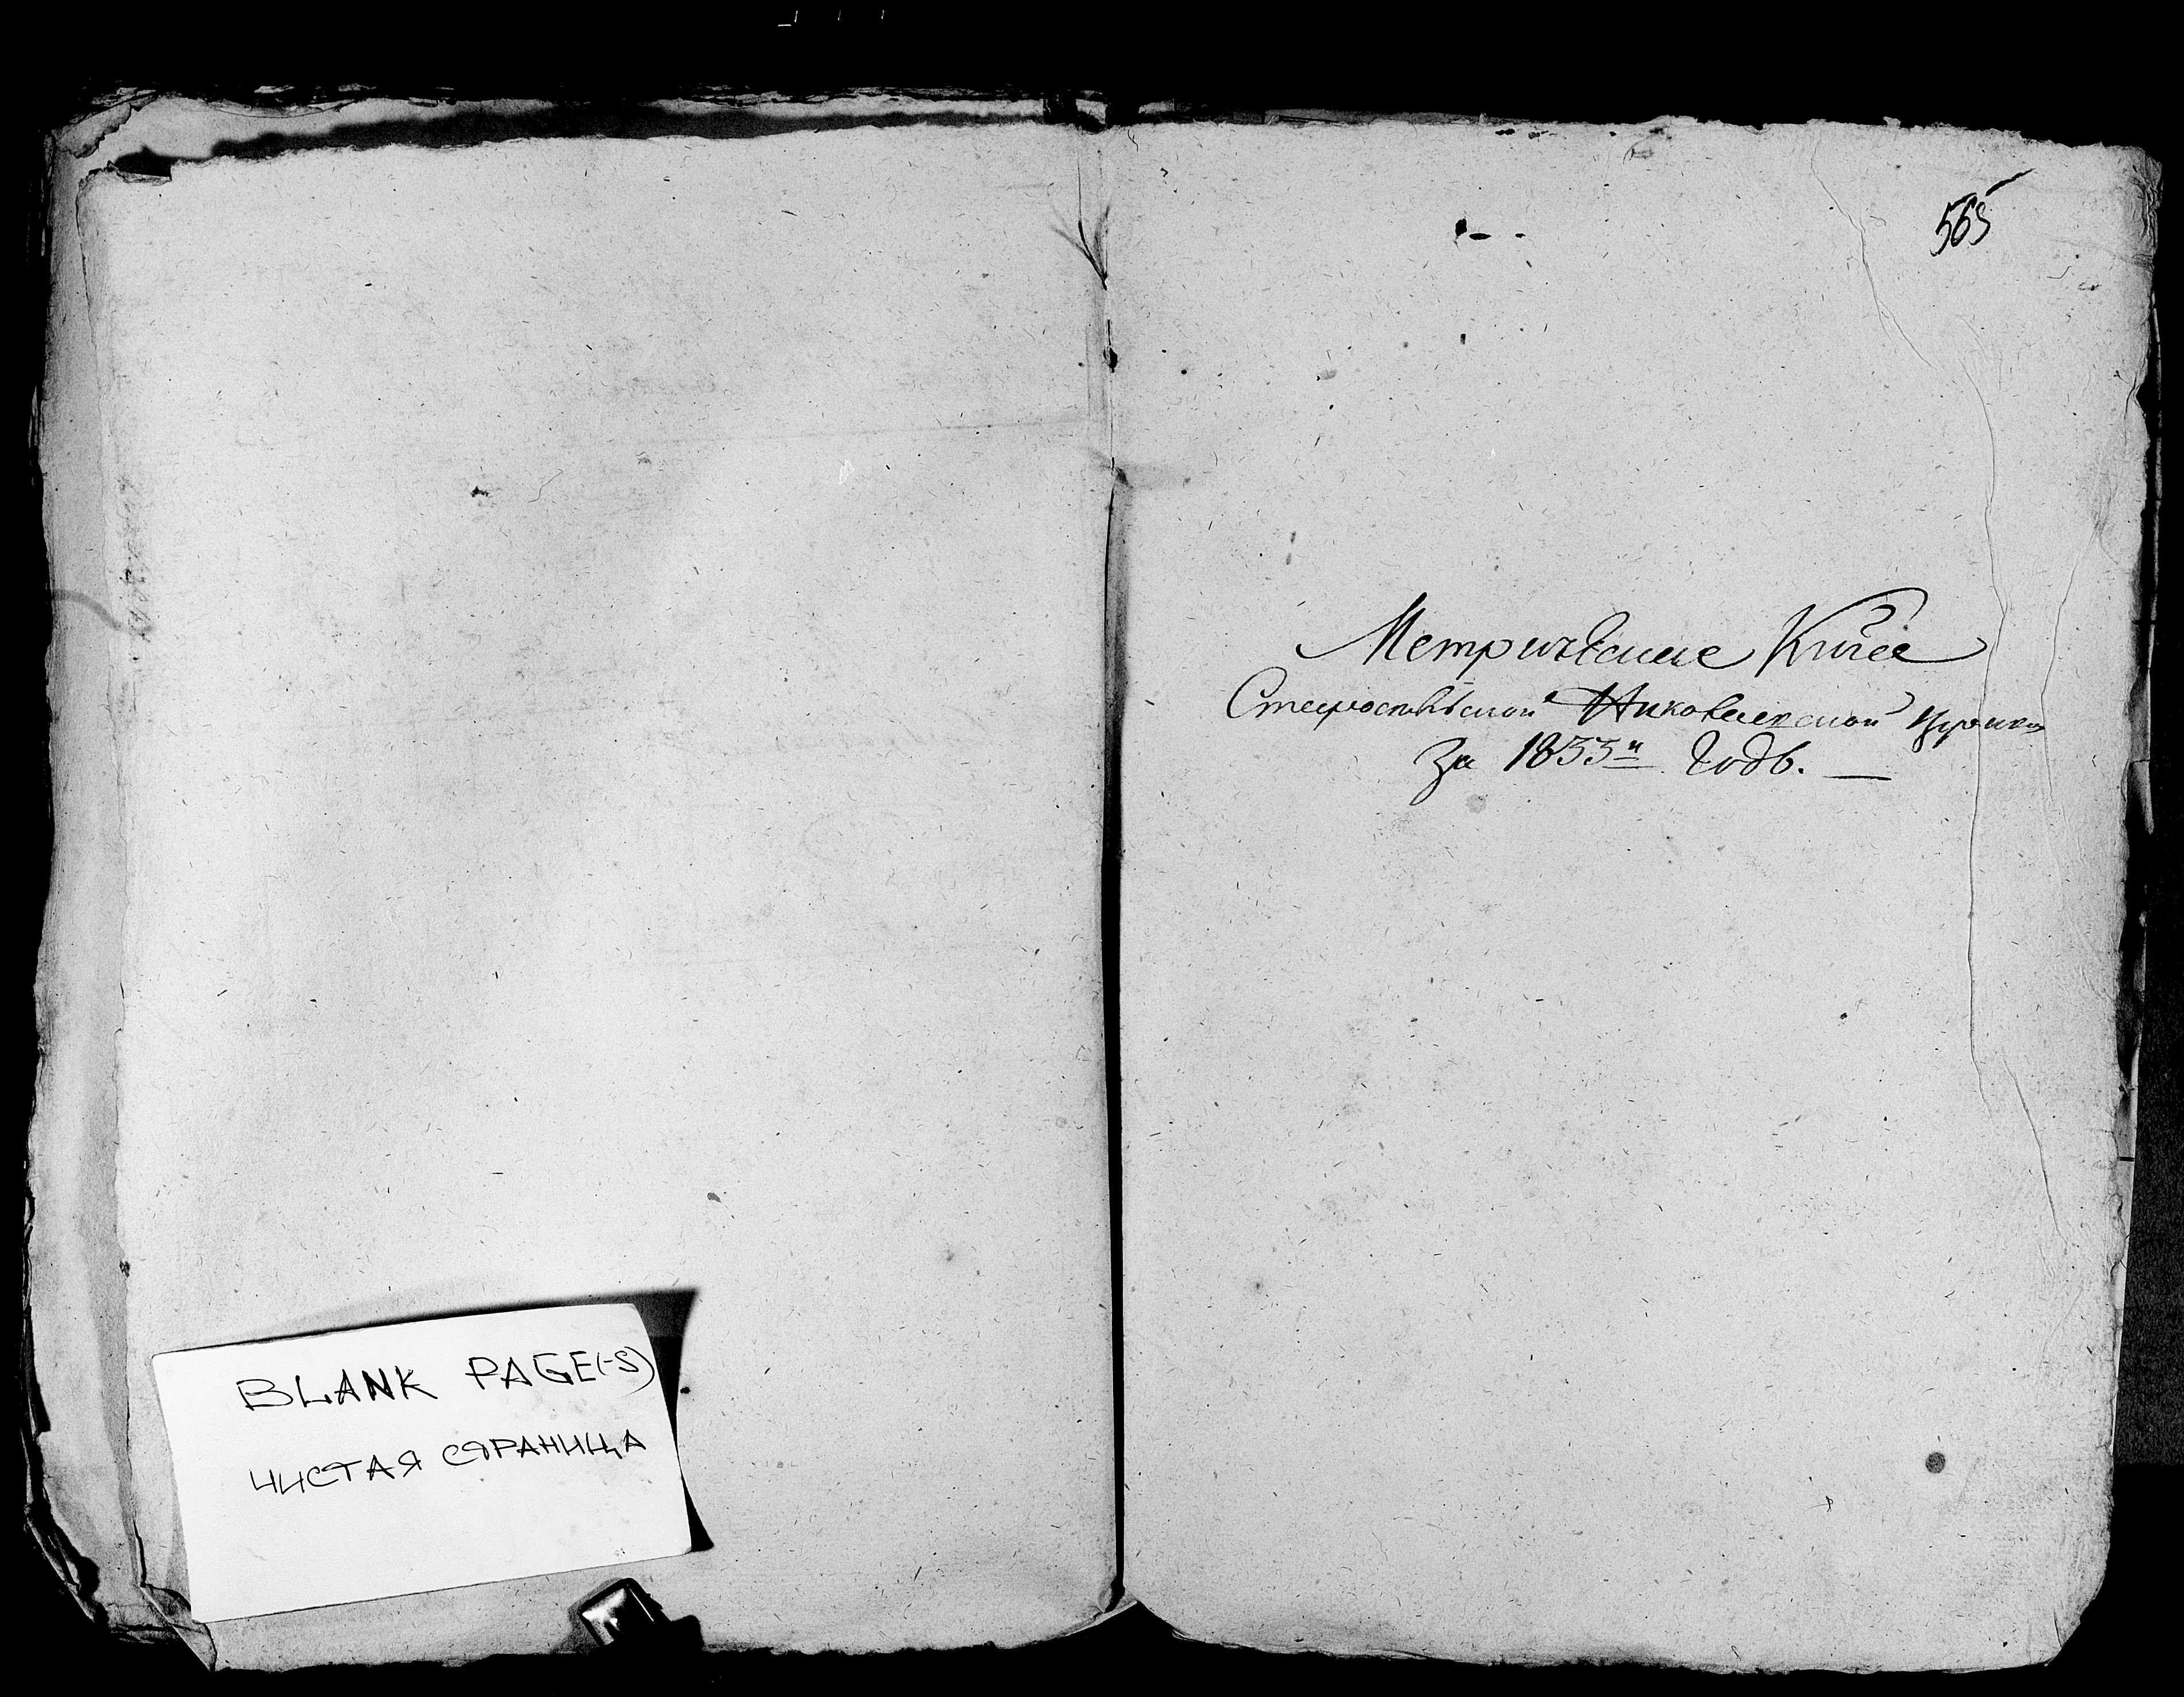 BLANK PAGE(-S)
ЧИСТАЯ СТРАНИЦА
565
Метрические Книги
Николаевской Церкви
За 1833й Годъ. —